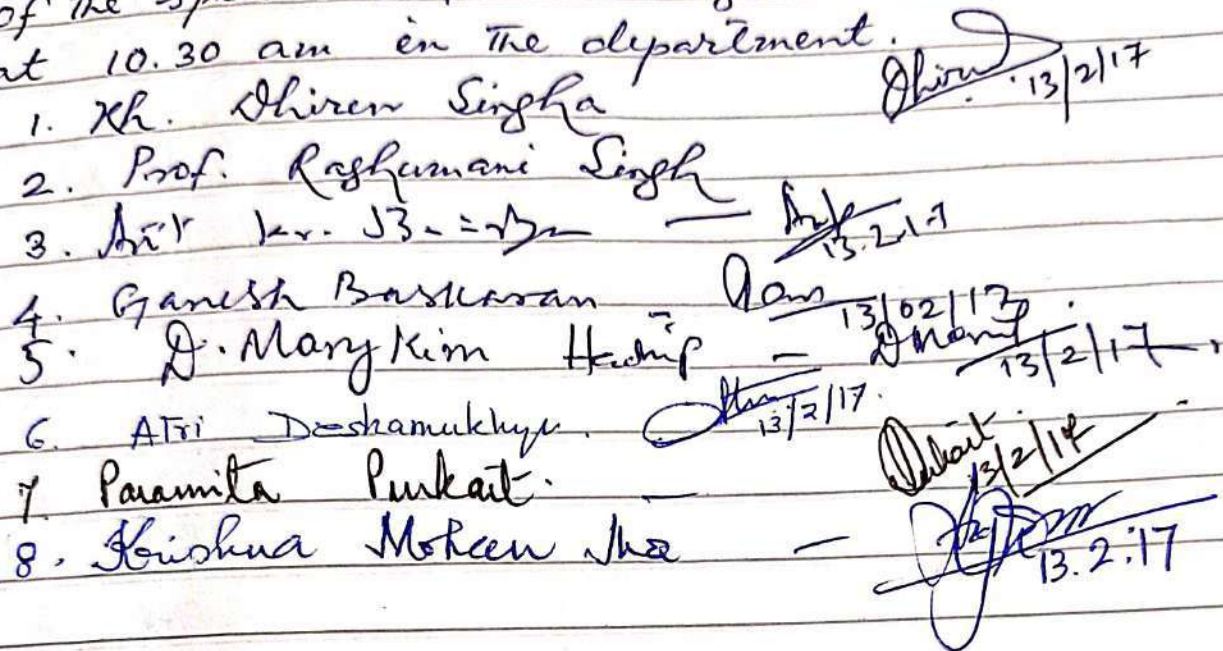 of the
at 10.30 am in the department.
1. Kh. Dhiren Singha 13/2/17
2. Prof. Raghumani Singh
3. kr. — 13.2.17
4. Ganesh Baskaran 13/02/17.
5. D. Mary Kim — 13/2/17
6. Atri Deshamukhya. 13/2/17.
7 Paramita Purkait. — 13/2/17
8. Krishna Mohan Jha — 13.2.17